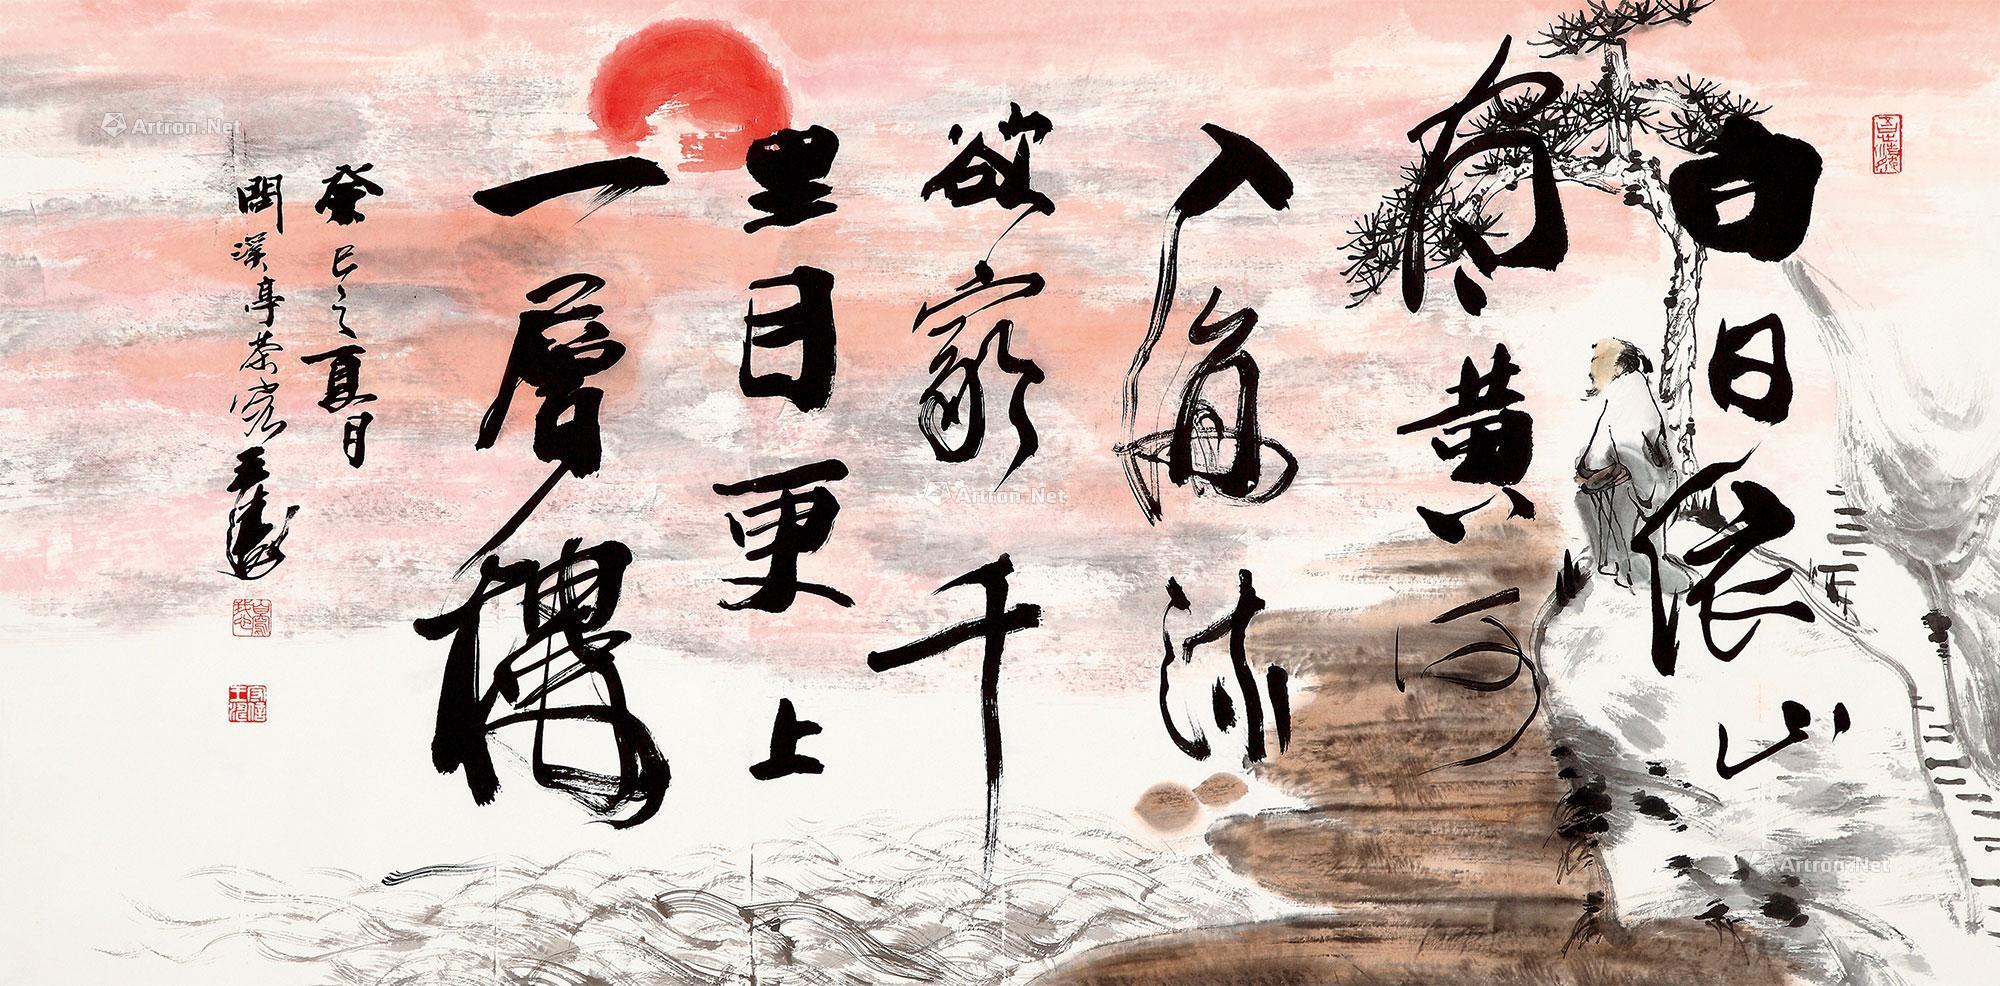 白日依山
尽黄河
入海流
欲穷千
里目更上
一层楼
癸巳之夏月
闽溪亭茶客王涛
Artron.Net
Artron.Net
Artron.Net